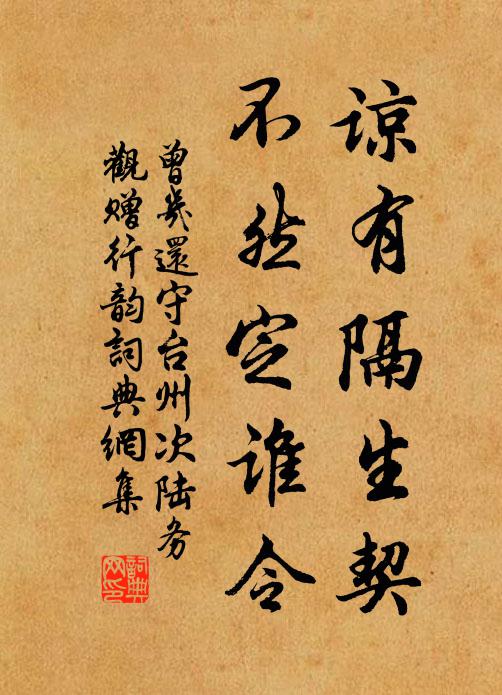 谅有隔生契
不然定谁令
曾幾還守台州次陆务
觀赠行韵詞典網集
詞典网印